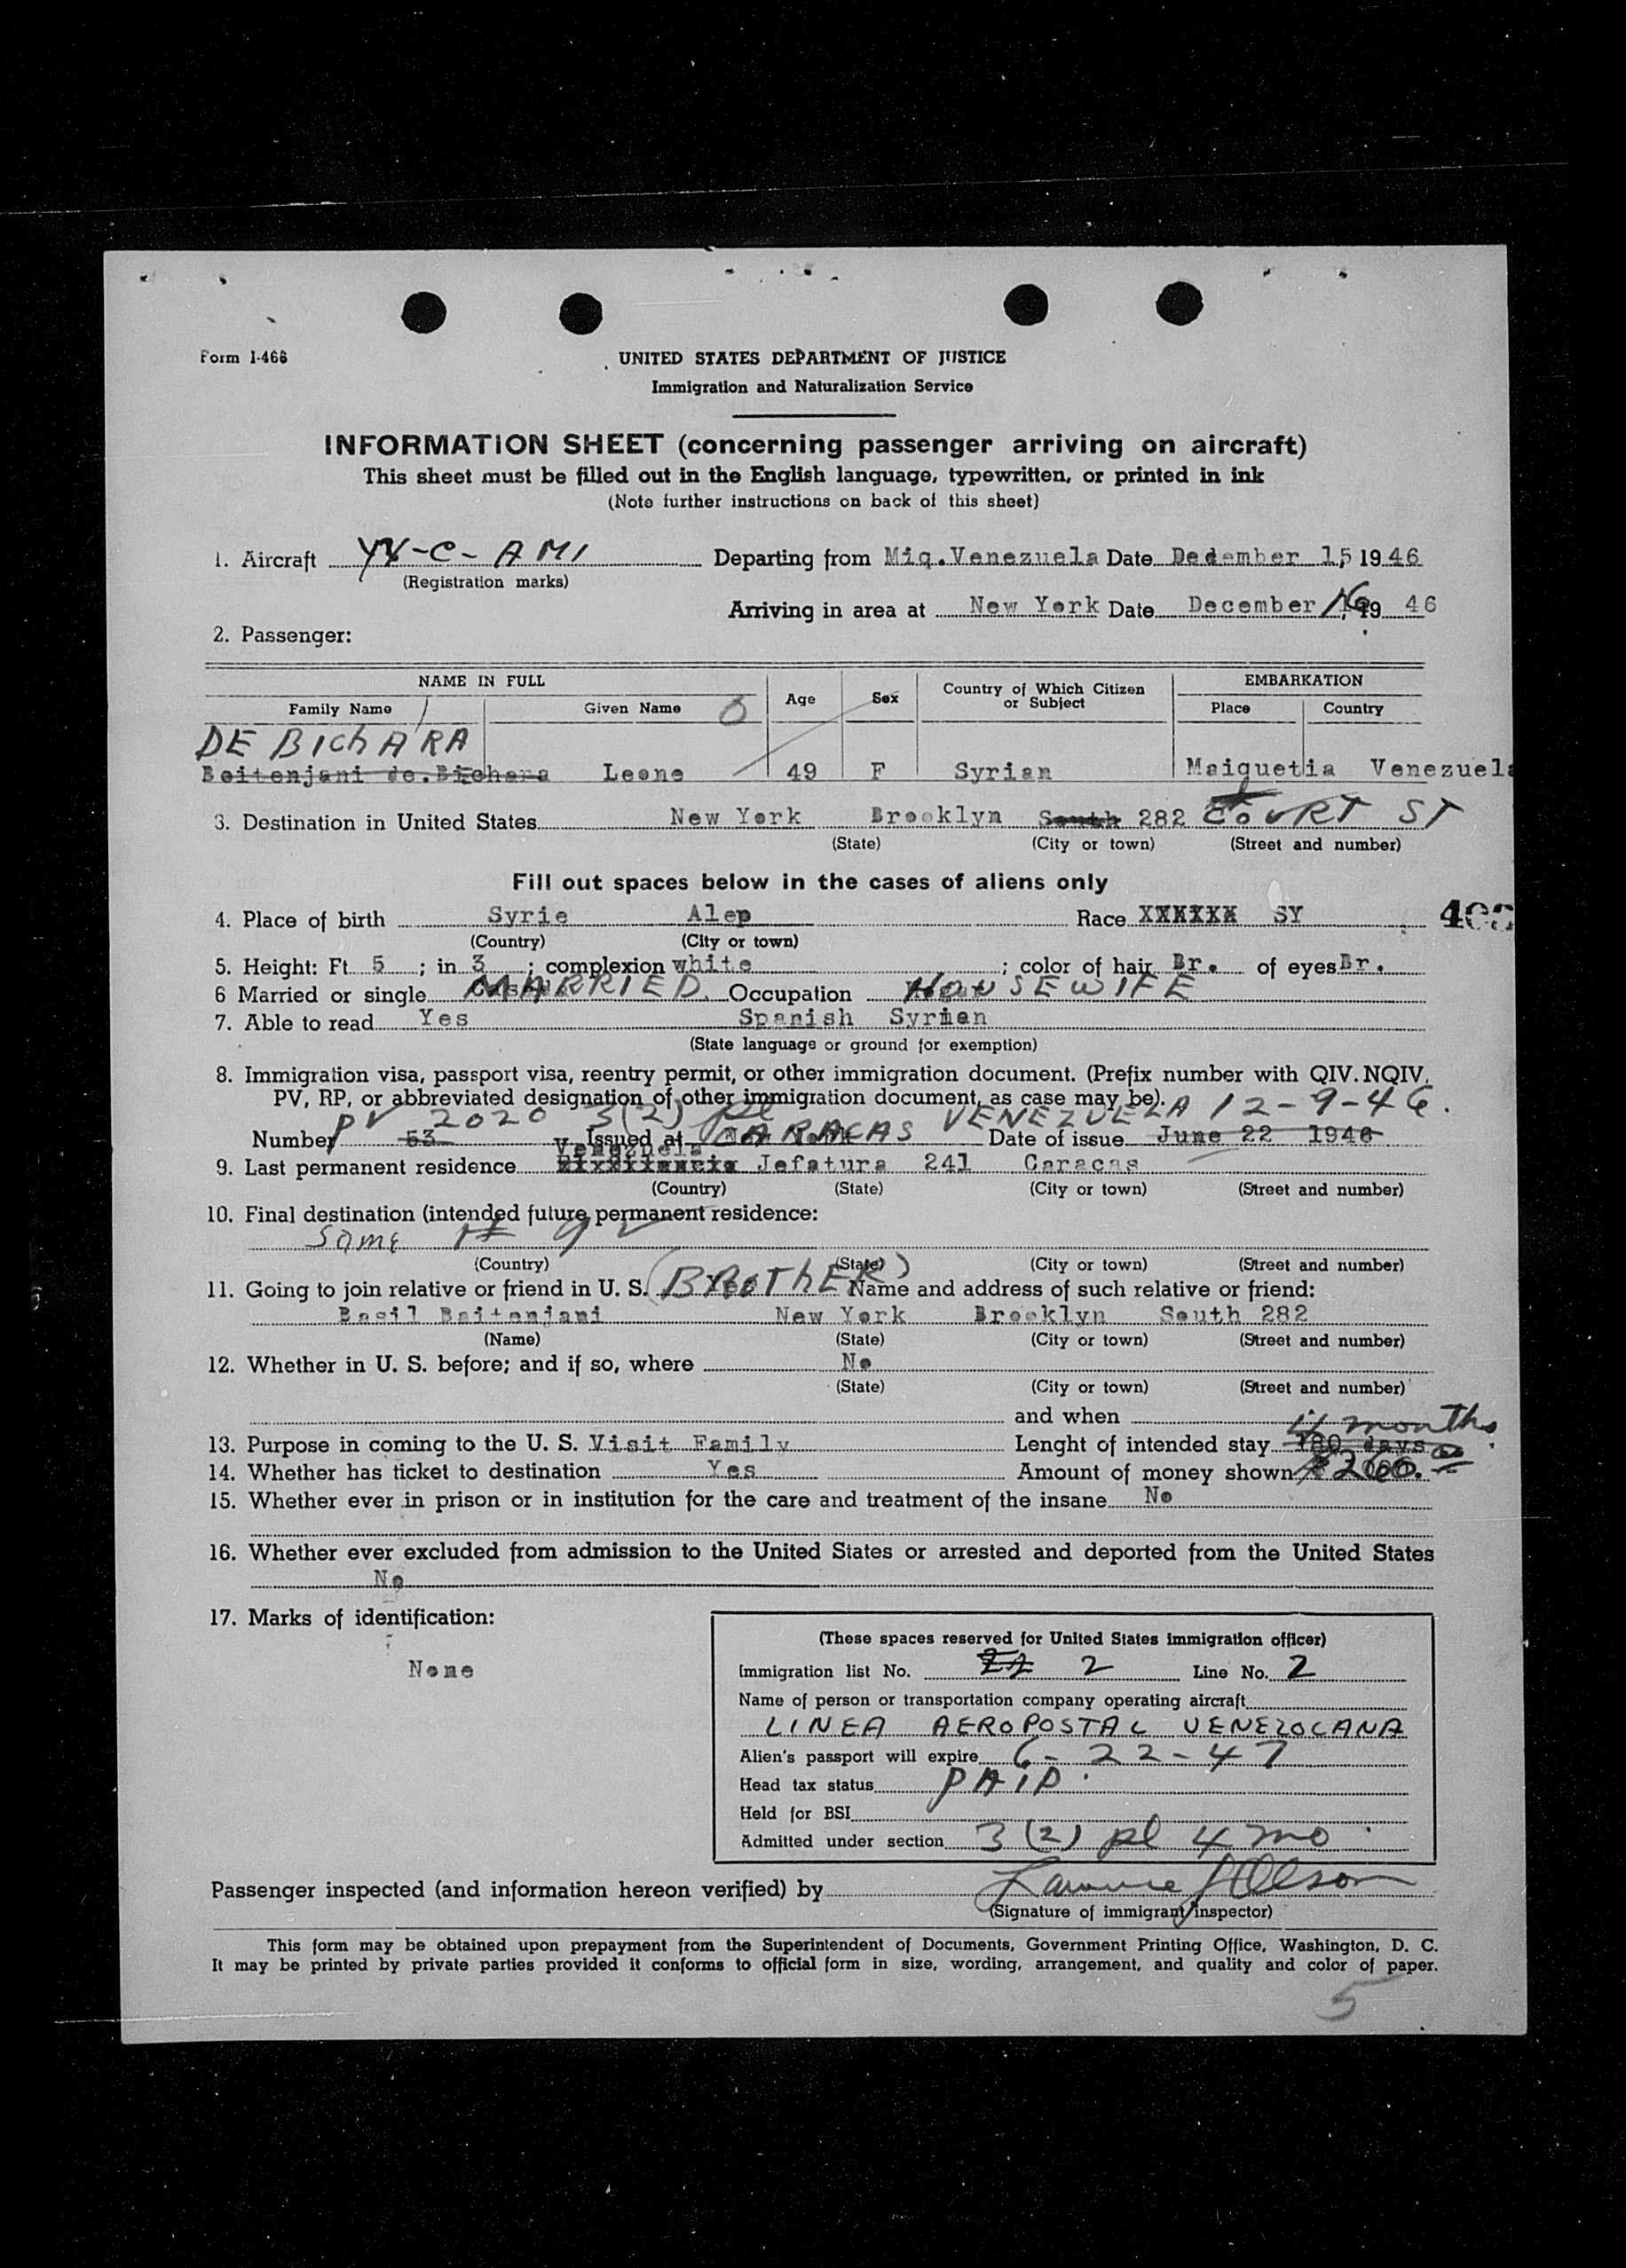 Form I-466
UNITED STATES DEPARTMENT OF JUSTICE
Immigration and Naturalization Service
INFORMATION SHEET (concerning passenger arriving on aircraft)
This sheet must be filled out in the English language, typewritten, or printed in ink
(Note further instructions on back of this sheet)
1. Aircraft YV-C-AMI Departing from Miq.Venezuela Date December 15 1946
(Registration marks)
Arriving in area at New York Date December 16, 19 46
2. Passenger:
NAME IN FULL Age Sex Country of Which Citizen or Subject EMBARKATION
Family Name Given Name Place Country
DE BIChARA
Beitenjani de.Bichara Leone 49 F Syrian Maiquetia Venezuela
3. Destination in United States New York Brooklyn South 282 COURT ST
(State) (City or town) (Street and number)
Fill out spaces below in the cases of aliens only
4. Place of birth Syrie Alep Race XXXXXX SY
(Country) (City or town)
5. Height: Ft 5 ; in 3 ; complexion white ; color of hair Br. of eyes Br.
6 Married or single MARRIED. Occupation HOUSEWIFE
7. Able to read Yes Spanish Syrian
(State language or ground for exemption)
8. Immigration visa, passport visa, reentry permit, or other immigration document. (Prefix number with QIV. NQIV,
PV, RP, or abbreviated designation of other immigration document, as case may be).
PV 2020 3(2) pl VENEZUELA 12-9-46.
Number 53 Issued at CARACAS Date of issue June 22 1946
Venezuela
9. Last permanent residence Jefatura 241 Caracas
(Country) (State) (City or town) (Street and number)
10. Final destination (intended future permanent residence:
Same # 9
(Country) (State) (City or town) (Street and number)
11. Going to join relative or friend in U. S. (BROThER) Name and address of such relative or friend:
Basil Baitenjani New York Brooklyn South 282
(Name) (State) (City or town) (Street and number)
12. Whether in U. S. before; and if so, where No
(State) (City or town) (Street and number)
and when
4 months
13. Purpose in coming to the U. S. Visit Family Lenght of intended stay 180 days
14. Whether has ticket to destination Yes Amount of money shown $260.00
15. Whether ever in prison or in institution for the care and treatment of the insane No
16. Whether ever excluded from admission to the United States or arrested and deported from the United States
No
17. Marks of identification:
None
(These spaces reserved for United States immigration officer)
Immigration list No. 2 Line No. 2
Name of person or transportation company operating aircraft
LINEA AEROPOSTAL VENEZOLANA
Alien's passport will expire 6-22-47
Head tax status PAID.
Held for BSI
Admitted under section 3(2) pl 4 mo
Passenger inspected (and information hereon verified) by Lawrence J Olson
(Signature of immigrant inspector)
This form may be obtained upon prepayment from the Superintendent of Documents, Government Printing Office, Washington, D. C.
It may be printed by private parties provided it conforms to official form in size, wording, arrangement, and quality and color of paper.
5